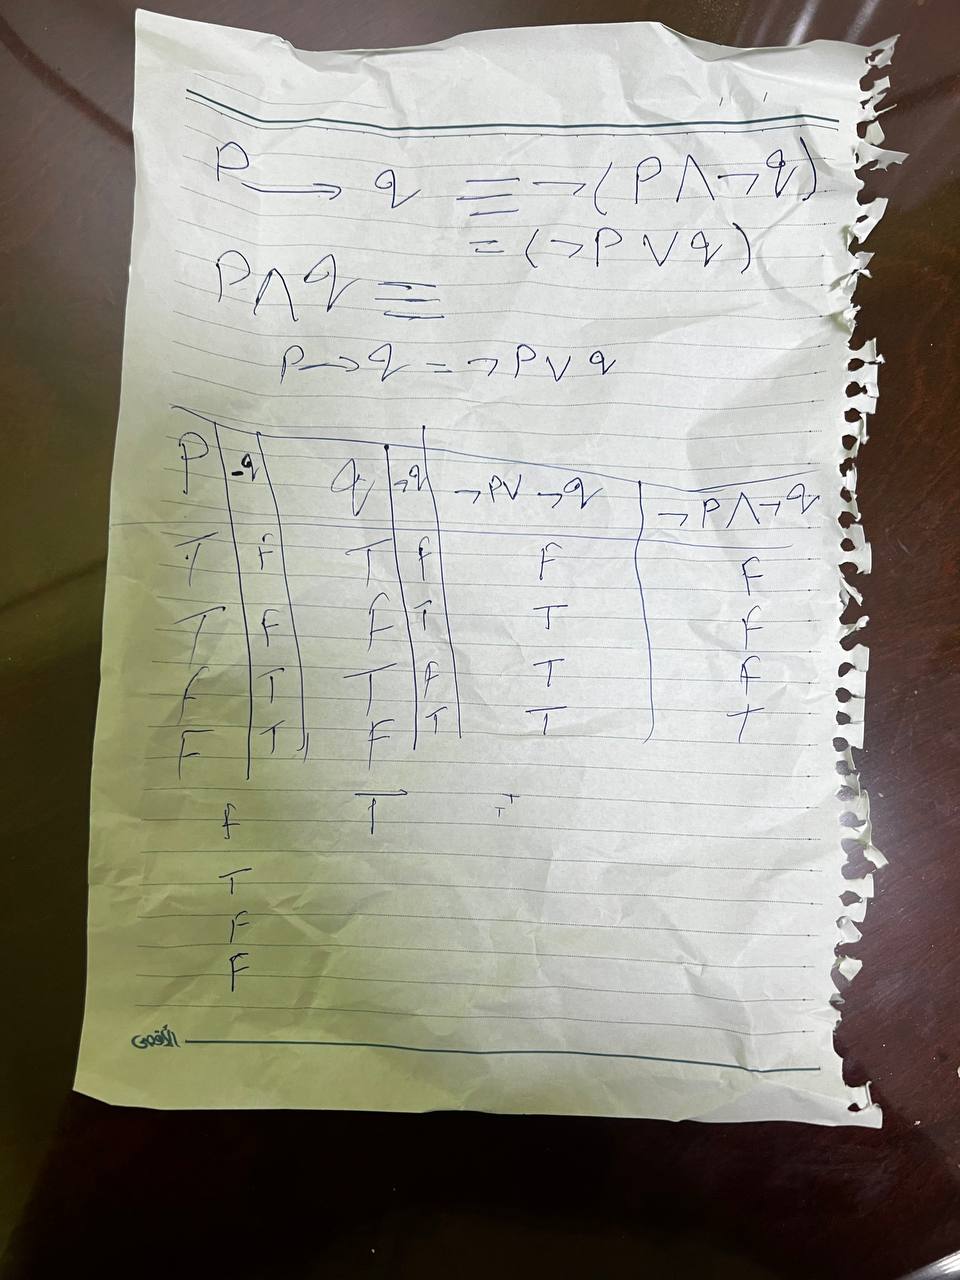 P → q ≡ ¬(P∧¬q)
= (¬P∨q)
P∧q ≡
P→q = ¬P∨q
P ¬q q ¬q ¬P∨¬q ¬P∧¬q
T F T F F F
T F F T T F
F T T F T F
F T F T T T
F T
T
F
F
الأقصى